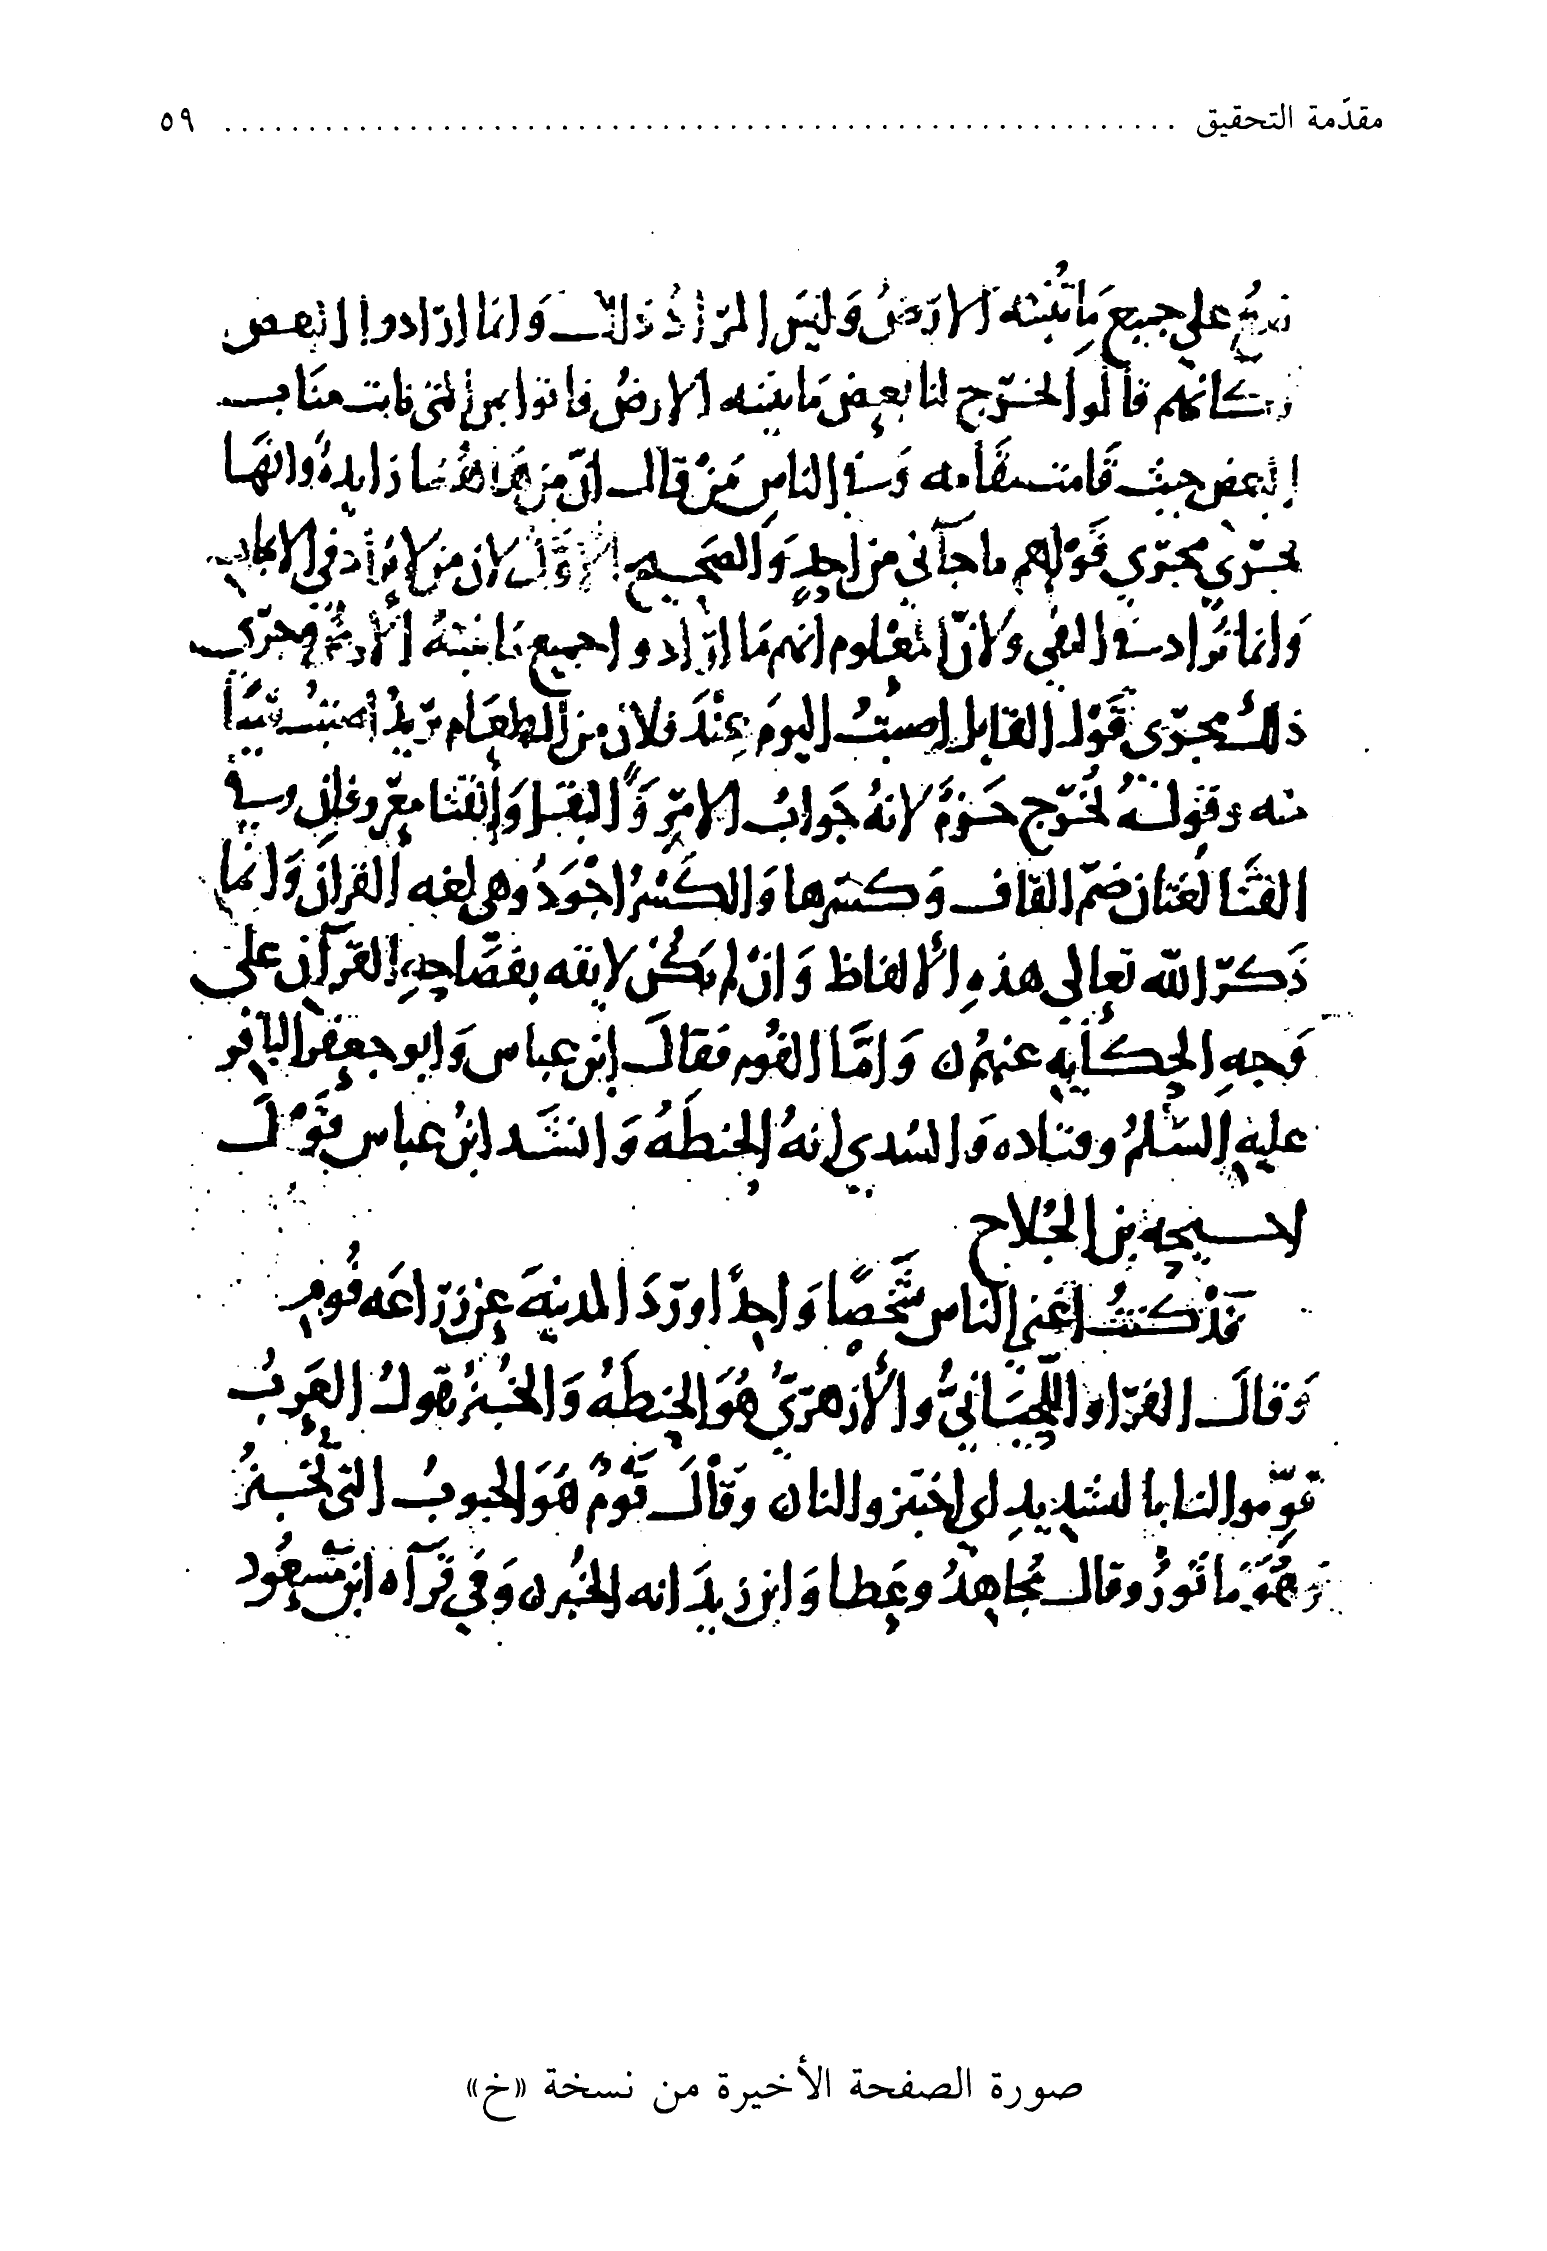 مقدّمة التحقيق ........................................................ ٥٩
على جميع ما تنبته الارض وليس المراد ذلك وانما ارادوا البعض
فكانهم قالوا يخرج لنا بعض ما تنبته الارض فاتوا بمن التي نابت مناب
البعض حيث قامت مقامه وفي الناس من قال ان من هاهنا زايدة وانها
تجري مجرى قولهم ما جآني من احدٍ والصحيح الاول لان من لا تزاد في الايجاب
وانما تزاد في النفي ولان المعلوم انهم ما ارادوا جميع ما تنبته الارض فجرى
ذلك مجرى قول القايل اصبت اليوم عند فلان من الطعام يريد اصبت شيئا
منه وقوله يخرج جزمٌ لانه جواب الامر والبقل والقثا معروفان وفي
القثا لغتان ضم القاف وكسرها والكسر اجود وهي لغه القران وانما
ذكر الله تعالى هذه الالفاظ وان لم يكن لايقه بفصاحه القرآن على
وجه الحكايه عنهم ن واما الفوم فقال ابن عباس وابو جعفر الباقر
عليه السلم وقتاده والسدي انه الحنطه وانشد ابن عباس قول
لاحيحه بن الجلاح
قد كنت اغنى الناس شخصًا واحدًا ورد المدينه عن زراعه فوم
وقال الفرا واللحياني والازهري هو الحنطه والخبز تقول العرب
فوّموا لنا بالتشديد اي اختبزوا لنا ن وقال قوم هو الحبوب التي تخبز
وهو ماثور وقال مجاهد وعطا وابن زيد انه الخبز ن وفي قرآه ابن مسعود
صورة الصفحة الأخيرة من نسخة «خ»